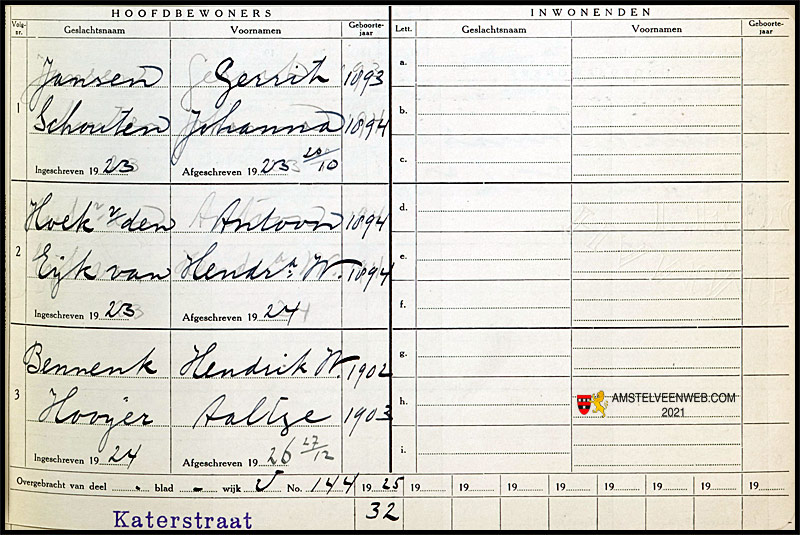 HOOFDBEWONERS INWONENDEN
Volg-nr. Geslachtsnaam Voornamen Geboorte-jaar Lett. Geslachtsnaam Voornamen Geboorte-jaar
Jansen Gerrit 1893 a.
1 Schouten Johanna 1894 b.
Ingeschreven 1923 Afgeschreven 1923 20/10 c.
Hoek v/den Antoon 1894 d.
2 Eijk van Hendra. W. 1894 e.
Ingeschreven 1923 Afgeschreven 1924 f.
Bennenk Hendrik W. 1902 g.
3 Hooijer Aaltje 1903 h.
AMSTELVEENWEB.COM
2021
Ingeschreven 1924 Afgeschreven 1926 27/12 i.
Overgebracht van deel . blad - wijk V No. 144 1925 19 19 19 19 19 19 19 19
Katerstraat 32